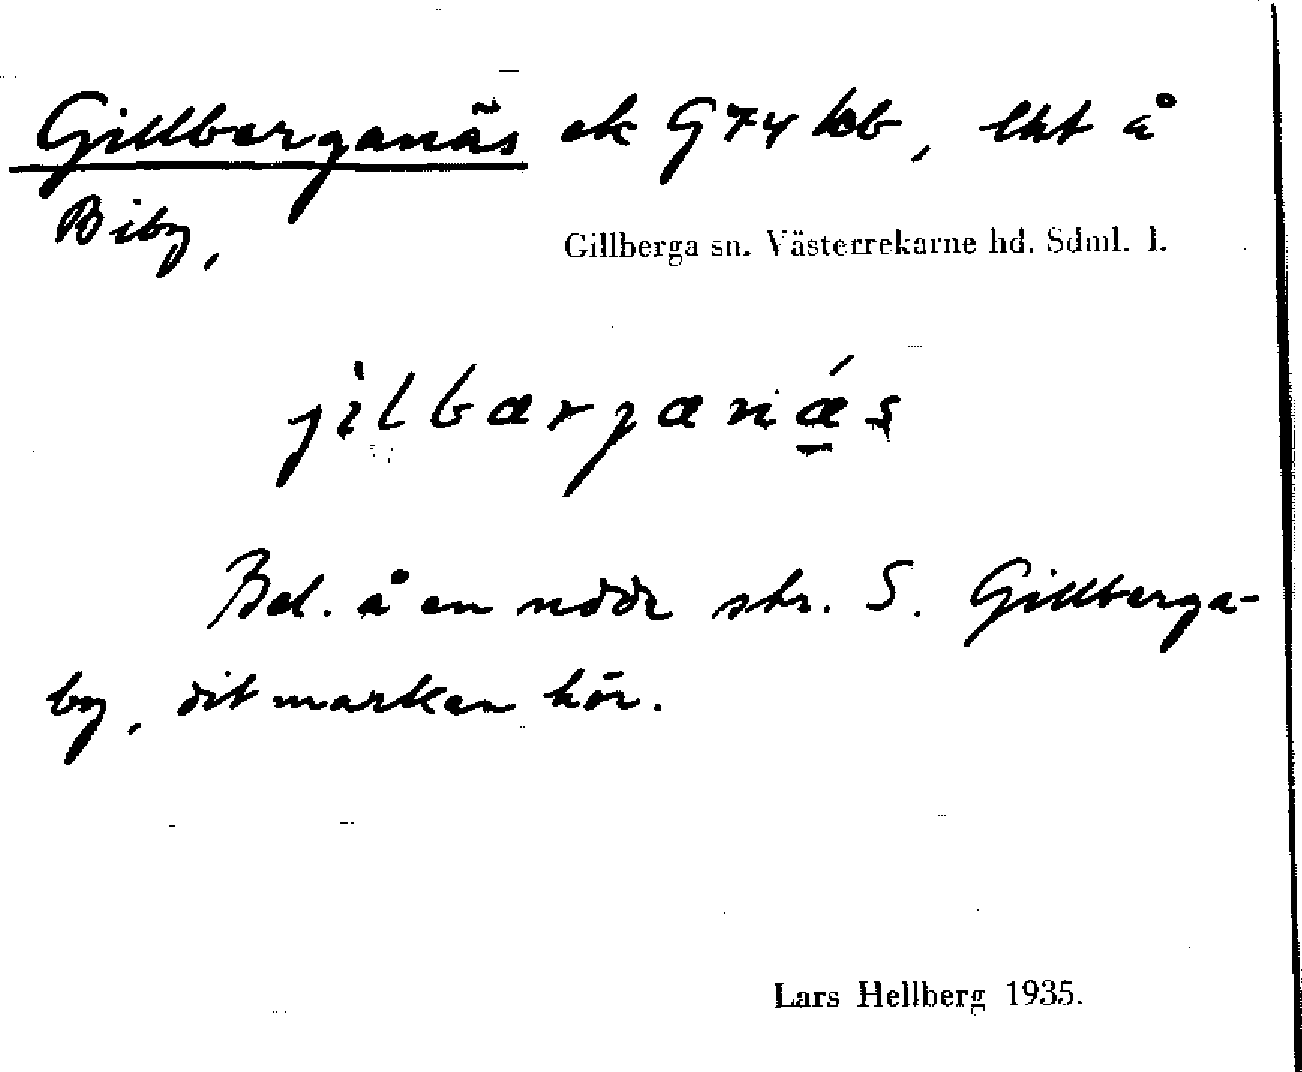 Gillberganäs ek G74 kb, lht å
Biby,
Gillberga sn. Västerrekarne hd. Sdml. l.
jilbærjanǽs
Bel. å en udde str. S. Gillberga-
by, dit marken hör.
Lars Hellberg 1935.